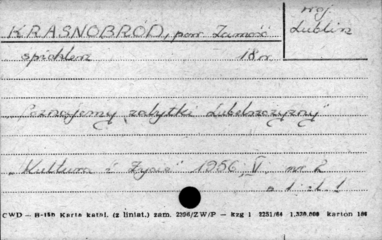 KRASNOBRÓD, pow. Zamość
woj.
Lublin
spichlerz 18 w.
"Poznajemy zabytki Lubelszczyzny"
"Kultura i Życie" 1956, V, nr 2
CWD — B-159 Karta katal. (z liniat.) zam. 2296/ZW/P — kzg 1 3251/64 1,320,000 karton 180